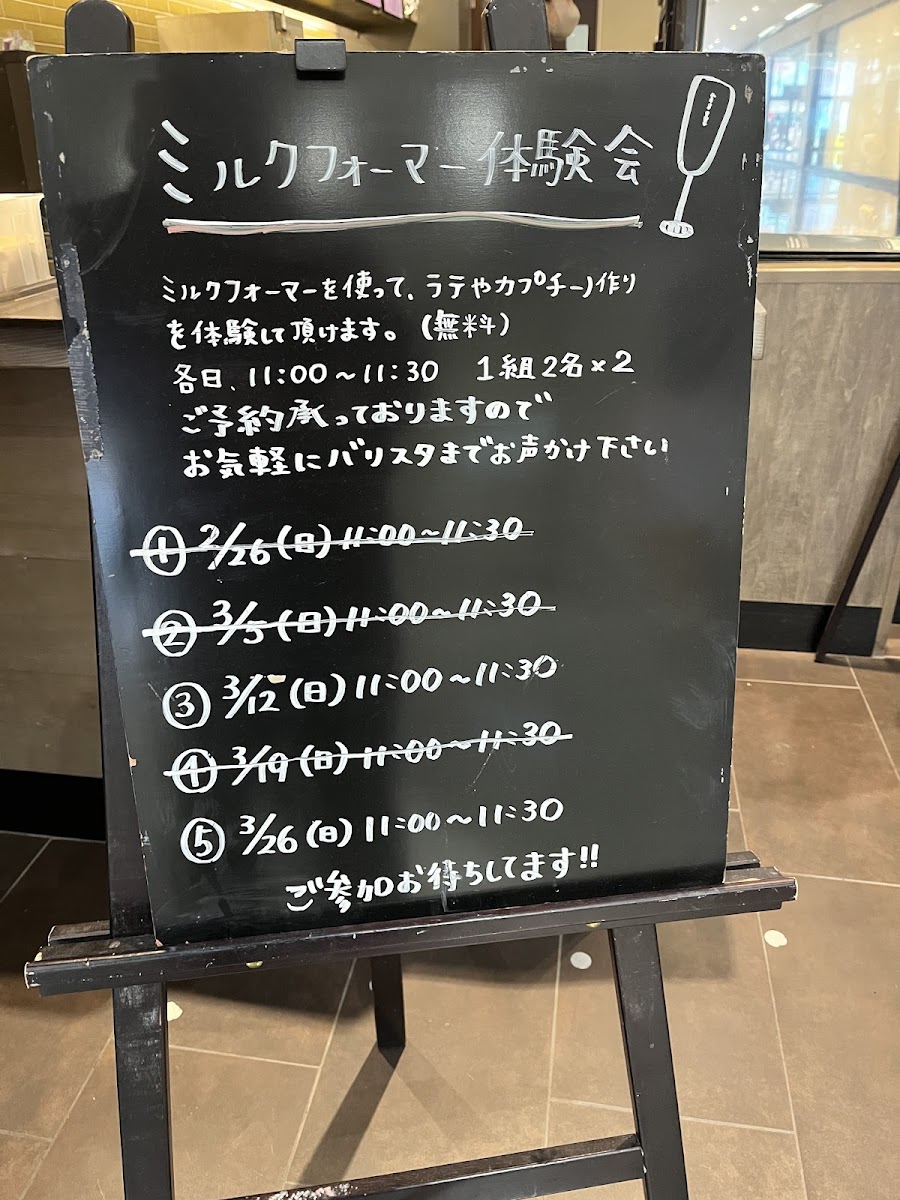 ミルクフォーマー体験会
ミルクフォーマーを使って、ラテやカプチーノ作り
を体験して頂けます。(無料)
各日、11:00～11:30 1組2名×2
ご予約承っておりますので
お気軽にバリスタまでお声かけ下さい
① 2/26(日)11:00～11:30
② 3/5(日)11:00～11:30
③ 3/12(日)11:00～11:30
④ 3/19(日)11:00～11:30
⑤ 3/26(日)11:00～11:30
ご参加お待ちしてます!!